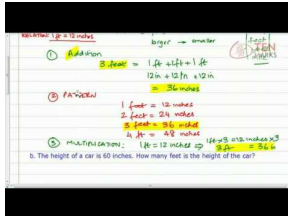 RELATION: 1 ft = 12 inches
bigger → smaller
① Addition
3 feet = 1 ft + 1 ft + 1 ft
12 in + 12 in + 12 in
= 36 inches
② PATTERN
1 foot = 12 inches
2 feet = 24 inches
3 feet = 36 inches
4 ft = 48 inches
③ MULTIPLICATION: 1 ft = 12 inches ⇒ 1 ft x 3 = 12 inches x 3
3 ft = 36
b. The height of a car is 60 inches. How many feet is the height of the car?